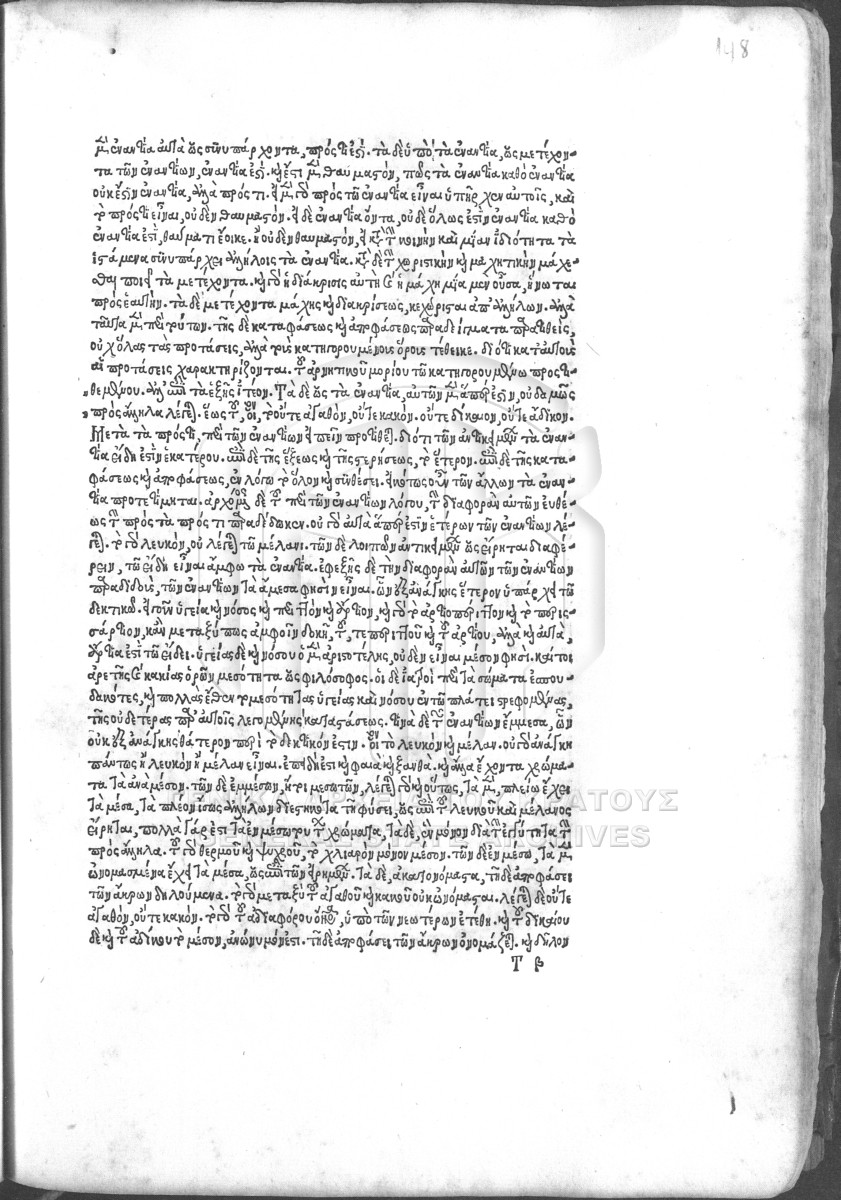 148
μὲν ἐναντία αὐτὰ ὡς συνυπάρχοντα, πρός τί ἐστι. τὰ δὲ ὑπὸ τὰ ἐναντία, ὡς μετέχον-
τα τῶν ἐναντίων, ἐναντία ἐστί. καὶ ἔστι μὲν θαυμαστὸν, πῶς τὰ ἐναντία καθὸ ἐναντία
οὐκ ἔστιν ἐναντία, ἀλλὰ πρός τι. εἰ μὲν γὰρ πρὸς τῶ ἐναντία εἶναι ὑπῆρχεν αὐτοῖς, καὶ
τὸ πρός τι εἶναι, οὐδὲν θαυμαστόν. εἰ δὲ ἐναντία ὄντα, οὐδὲ ὅλως ἐστὶν ἐναντία καθὸ
ἐναντία ἐστὶ, θαύματι ἔοικε. ἢ οὐδὲν θαυμαστὸν, εἰ κατὰ τὴν κοινὴν καὶ μίαν ἰδιότητα τὰ
ἱστάμενα συνυπάρχει ἀλλήλοις τὰ ἐναντία. κατὰ δὲ τὴν χωριστικὴν καὶ μαχητικὴν μάχε-
σθαι ποιεῖ τὰ μετέχοντα. καὶ γὰρ ἡ διάκρισις αὐτὴ καὶ ἡ μάχη μία μένουσα, ἥνωται
πρὸς ἑαυτήν. τὰ δὲ μετέχοντα μάχης καὶ διακρίσεως, κεχώρισται ἀπ' ἀλλήλων. ἀλλὰ
ταῦτα μὲν περὶ τούτων. τῆς δὲ καταφάσεως καὶ ἀποφάσεως παραδείγματα παραθεὶς,
οὐχ ὅλας τὰς προτάσεις, ἀλλὰ τοὺς κατηγορουμένους ὅρους τέθεικε. διότι κατ' αὐτοὺς
αἱ προτάσεις χαρακτηρίζονται. τοῦ ἀρνητικοῦ μορίου τῶ κατηγορουμένω προστι-
θεμένου. ἀλλ' ἐπὶ τὰ ἑξῆς ἰτέον. Τὰ δὲ ὡς τὰ ἐναντία, αὐτῶν μὲν ἅπερ ἐστὶν, οὐδαμῶς
πρὸς ἄλληλα λέγεται. ἕως τοῦ, οἷον, τὸ οὔτε ἀγαθὸν, οὔτε κακὸν. οὔτε δίκαιον, οὔτε ἄδικον.
Μετὰ τὰ πρός τι, περὶ τῶν ἐναντίων εἰπεῖν προτίθεται. διότι τῶν ἀντικειμένων τὰ ἐναν-
τία εἴδη ἐστὶν ἑκατέρου. ἐπὶ δὲ τῆς ἕξεως καὶ τῆς στερήσεως, τὸ ἕτερον. ἐπὶ δὲ τῆς κατα-
φάσεως καὶ ἀποφάσεως, ἐν λόγω τὸ ὅλον καὶ συνθέσει. εἰκότως οὖν τῶν ἄλλων τὰ ἐναν-
τία προτετίμηται. ἀρχόμενος δὲ τοῦ περὶ τῶν ἐναντίων λόγου, τὴν διαφορὰν αὐτῶν εὐθέ-
ως τὴν πρὸς τὰ πρός τι παραδέδωκεν. οὐ γὰρ αὐτὰ ἅπερ ἐστὶν ἑτέρων τῶν ἐναντίων λέ-
γεται. τὸ γὰρ λευκὸν, οὐ λέγεται τῶ μέλανι. τῶν δὲ λοιπῶν ἀντικειμένων ὡς εἴρηται διαφέ-
ρειν, τῶ εἴδη εἶναι ἄμφω τὰ ἐναντία. ἐφεξῆς δὲ τὴν διαφορὰν αὐτῶν τῶν ἐναντίων
παραδίδοὺς, τῶν ἐναντίων τὰ ἄμεσά φησιν εἶναι. ὧν ἐξ ἀνάγκης ἕτερον ὑπάρχει τῶ
δεκτικῶ. εἰ γοῦν ὑγεία καὶ νόσος καὶ περιττὸν καὶ ἄρτιον, καὶ γὰρ τὸ ἀρτιοπέριττον καὶ τὸ περισ-
σάρτιον, κἂν μεταξύ πως ἀμφοῖν δοκῆ, τοῦ, τε περιττοῦ καὶ τοῦ ἀρτίου, ἀλλὰ καὶ αὐτὰ,
ἄρτιά ἐστι τῶ εἴδει. ὑγείας δὲ καὶ νόσου ὁ μὲν ἀριστοτέλης, οὐδὲν εἶναι μέσον φησί. καίτοι
ἀρετῆς καὶ κακίας ὁρῶν μεσότητα ὡς φιλόσοφος. οἱ δὲ ἰατροὶ περὶ τὰ σώματα ἐσπου-
δακότες, καὶ πολλὰς εἶδον μεσότητας ὑγείας καὶ νόσου ἐν τῶ πλάτει στρεφομένας,
τῆς οὐδετέρας παρ' αὐτοῖς λεγομένης καταστάσεως. τινὰ δὲ τῶν ἐναντίων ἔμμεσα, ὧν
οὐκ ἐξ ἀνάγκης θάτερον περὶ τὸ δεκτικόν ἐστιν. οἷον τὸ λευκὸν καὶ μέλαν. οὐ γὰρ ἀνάγκη
πάντως ἢ λευκὸν ἢ μέλαν εἶναι. ἐπειδή ἐστι καὶ φαιὰ καὶ ξανθὰ. καὶ ἄλλα ἔχοντα χρώμα-
τα τὰ ἀνὰ μέσον. τῶν δὲ ἐμμέσων, ἤτοι μεσωτῶν, λέγεται γὰρ καὶ οὕτως, τὰ μὲν, πλείω ἔχει
τὰ μέσα, τὰ πλεονάσως ἀλλήλων διεστηκότα τῆ φύσει, ὡς ἐπὶ τοῦ λευκοῦ καὶ μέλανος
εἴρηται, πολλὰ γάρ ἐστι τὰ ἐν μέσω τούτων χρώματα, τὰ δὲ, ἓν μόνον διὰ τὴν ἐγγύτητα τὴν
πρὸς ἄλληλα. τοῦ γὰρ θερμοῦ καὶ ψυχροῦ, τὸ χλιαρὸν μόνον μέσον. τῶν δὲ ἐν μέσω, τὰ μὲν
ὠνομασμένα ἔχει τὰ μέσα, ὡς ἐπὶ τῶν εἰρημένων. τὰ δὲ, ἀκατονόμαστα, τῆ δὲ ἀποφάσει
τῶν ἄκρων δηλούμενα. τὸ γὰρ μεταξὺ τοῦ ἀγαθοῦ καὶ κακοῦ οὐκ ὠνόμασται. λέγεται δὲ οὔτε
ἀγαθὸν, οὔτε κακὸν. τὸ γὰρ τοῦ ἀδιαφόρου ὄνομα, ὑπὸ τῶν νεωτέρων ἐτέθη. καὶ τοῦ δικαίου
δὲ καὶ τοῦ ἀδίκου τὸ μέσον, ἀνώνυμόν ἐστι. τῆ δὲ ἀποφάσει τῶν ἄκρων ὀνομάζεται. καὶ δῆλον
Τ β
ΓΕΝΙΚΑ ΑΡΧΕΙΑ ΤΟΥ ΚΡΑΤΟΥΣ
GENERAL STATE ARCHIVES